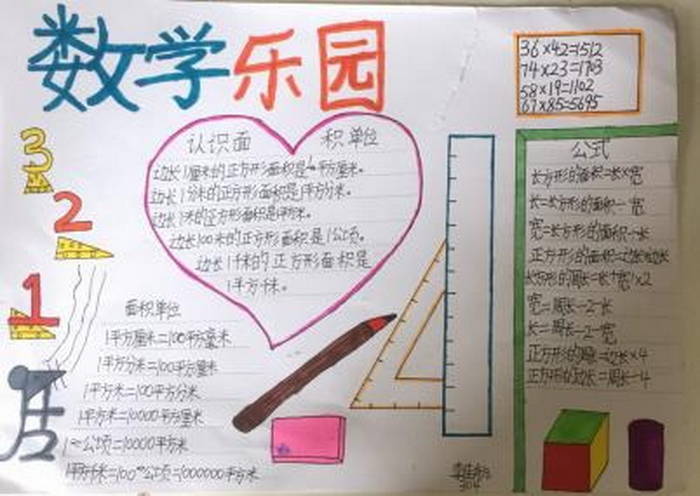 数学乐园
36×42=1512
74×23=1703
58×19=1102
67×85=5695
3
2
1
认识面积单位
边长1厘米的正方形面积是1平方厘米。
边长1分米的正方形面积是1平方分米。
边长1米的正方形面积是1平方米。
边长100米的正方形面积是1公顷。
边长1千米的正方形面积是
1平方千米。
面积单位
1平方厘米=100平方毫米
1平方分米=100平方厘米
1平方米=100平方分米
1平方米=10000平方厘米
1公顷=10000平方米
1平方千米=100公顷=1000000平方米
公式
长方形的面积=长×宽
长=长方形的面积÷宽
宽=长方形的面积÷长
正方形的面积=边长×边长
长方形的周长=(长+宽)×2
宽=周长÷2-长
长=周长÷2-宽
正方形的周长=边长×4
正方形的边长=周长÷4